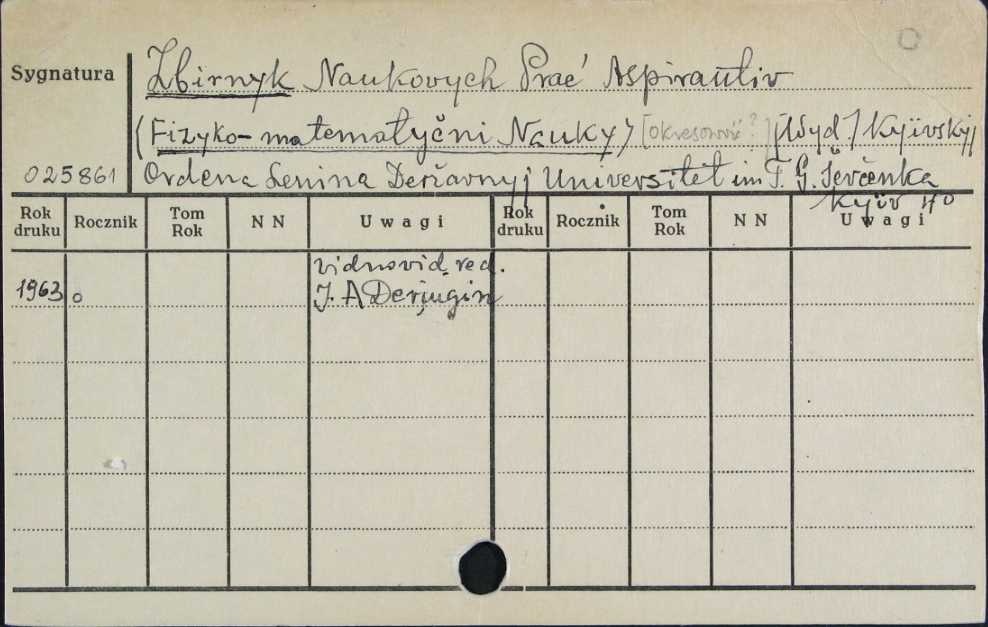 Sygnatura
Zbirnyk Naukovych Prać Aspirantiv
(Fizyko-matematyčni Nauky) [okresowość?] [Wyd.] Kyïvskyj
025861 Ordena Lenina Deržavnyj Universitet im T. G. Ševčenka
Kyïv
Rok druku Rocznik Tom Rok N N Uwagi Rok druku Rocznik Tom Rok N N Uwagi
vidnovid. red.
1963 o J. A Derjugin